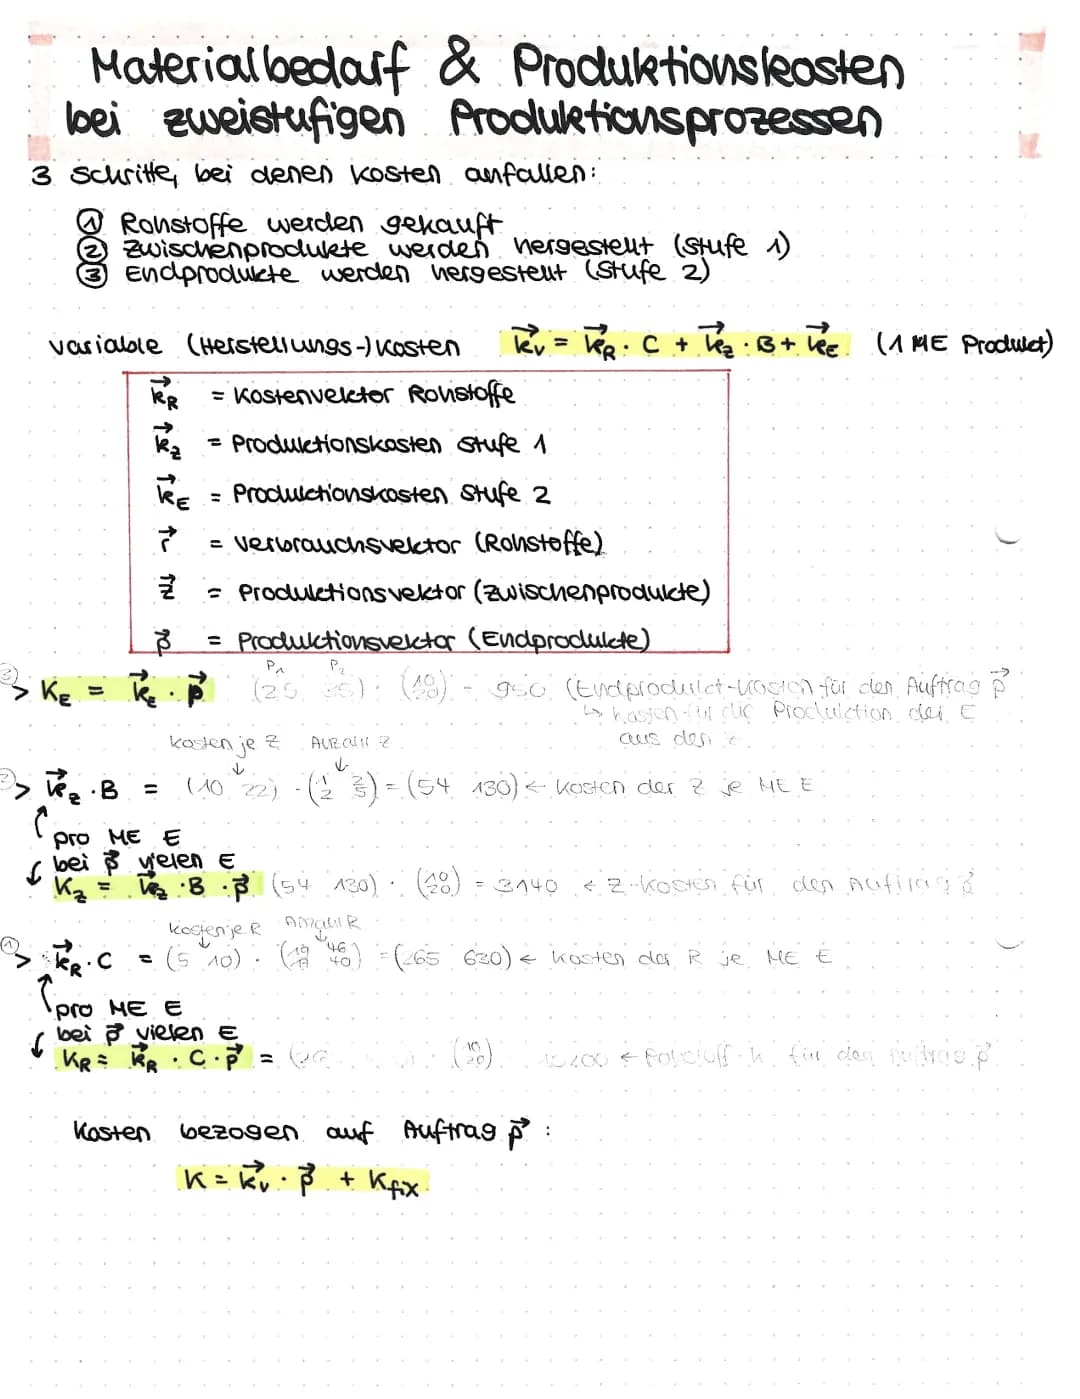 Materialbedarf & Produktionskosten
bei zweistufigen Produktionsprozessen
3 Schritte, bei denen Kosten anfallen:
① Rohstoffe werden gekauft
② Zwischenprodukte werden hergestellt (Stufe 1)
③ Endprodukte werden hergestellt (Stufe 2)
variable (Herstellungs-) Kosten k⃗v = k⃗R · C + k⃗z · B + k⃗E (1 ME Produkt)
k⃗R = Kostenvektor Rohstoffe
k⃗z = Produktionskosten Stufe 1
k⃗E = Produktionskosten Stufe 2
r⃗ = Verbrauchsvektor (Rohstoffe)
z⃗ = Produktionsvektor (Zwischenprodukte)
p⃗ = Produktionsvektor (Endprodukte)
P1 P2
③ > KE = k⃗E · p⃗ (25 35) · (10 20) = 950 (Endprodukt-Kosten für den Auftrag p⃗
↳ Kosten für die Produktion der E
aus den Z
Kosten je Z Anzahl Z
② > k⃗z · B = (10 22) · (1 2 / 2 5) = (54 130) ← Kosten der Z je ME E
pro ME E
bei p⃗ vielen E
Kz = k⃗z · B · p⃗ (54 130) · (10 20) = 3140 ← Z-Kosten für den Auftrag p⃗
Kosten je R Anzahl R
① > k⃗R · C = (5 10) · ( 46 / 40) = (265 630) ← Kosten der R je ME E
pro ME E
bei p⃗ vielen E
KR = k⃗R · C · p⃗ = · (10 20) ← für den Auftrag p⃗
Kosten bezogen auf Auftrag p⃗ :
K = k⃗v · p⃗ + Kfix